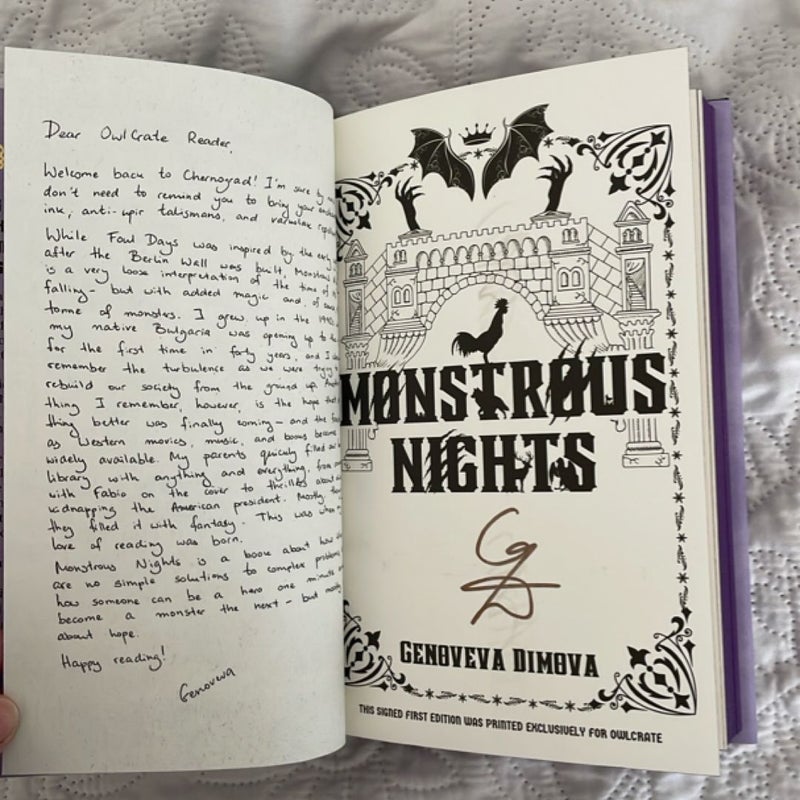 Dear OwlCrate Reader,
Welcome back to Chernograd! I'm sure by now
don't need to remind you to bring your
ink, anti-upir talismans, and varkolak
While Foul Days was inspired by the early
after the Berlin Wall was built, Monstrous
is a very loose interpretation of the time of
falling - but with added magic and, of
tonne of monsters. I grew up in the 1990s
my native Bulgaria was opening up to the
for the first time in forty years, and I
remember the turbulence as we were trying
rebuild our society from the ground up.
thing I remember, however, is the hope that
thing better was finally coming - and the
as Western movies, music, and books became
widely available. My parents quickly filled our
library with anything and everything, from
with Fabio on the cover to thrillers about
kidnapping the American president. Mostly
they filled it with fantasy. This was when
love of reading was born.
Monstrous Nights is a book about how
are no simple solutions to complex problems
how someone can be a hero one minute
become a monster the next - but mostly
about hope.
Happy reading!
Genoveva
MONSTROUS
NIGHTS
GD
GENOVEVA DIMOVA
THIS SIGNED FIRST EDITION WAS PRINTED EXCLUSIVELY FOR OWLCRATE